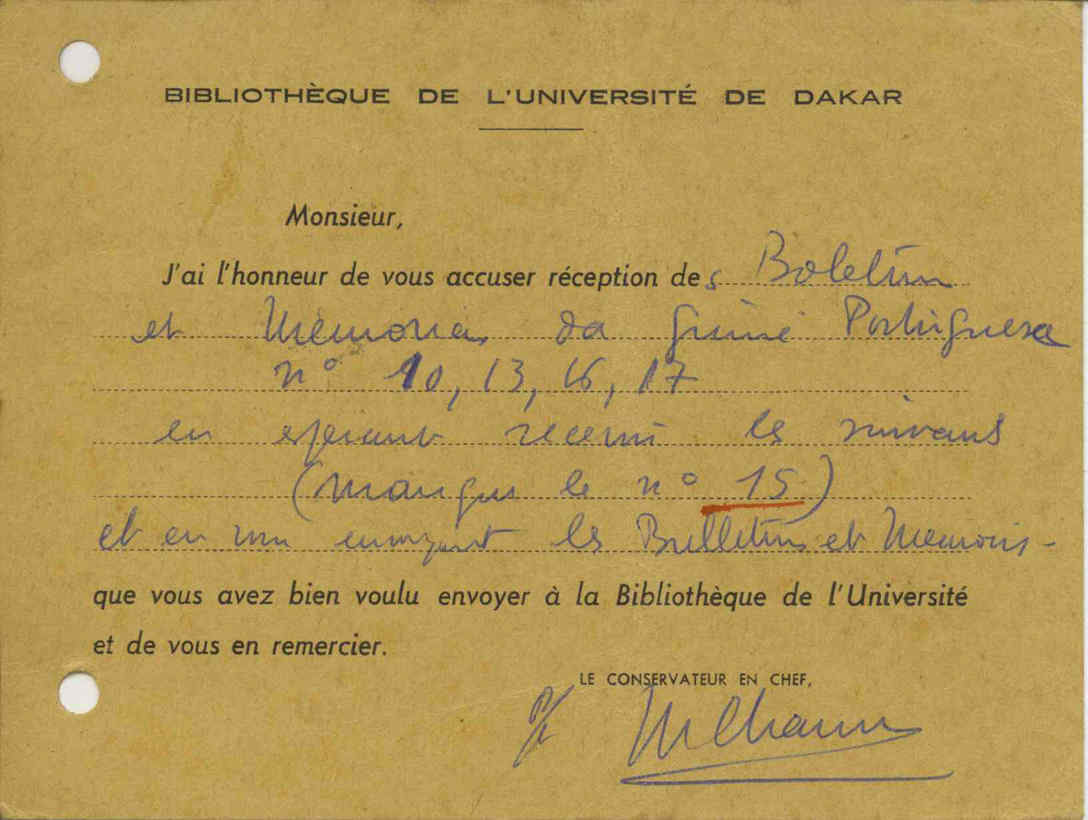 BIBLIOTHÈQUE DE L'UNIVERSITÉ DE DAKAR
Monsieur,
J'ai l'honneur de vous accuser réception des Boletim
et Memorias da Guiné Portuguesa
n° 10, 13, 16, 17
en espérant recevoir les suivants
(manque le n° 15)
et en vous envoyant les Bulletins et Memoirs -
que vous avez bien voulu envoyer à la Bibliothèque de l'Université
et de vous en remercier.
LE CONSERVATEUR EN CHEF,